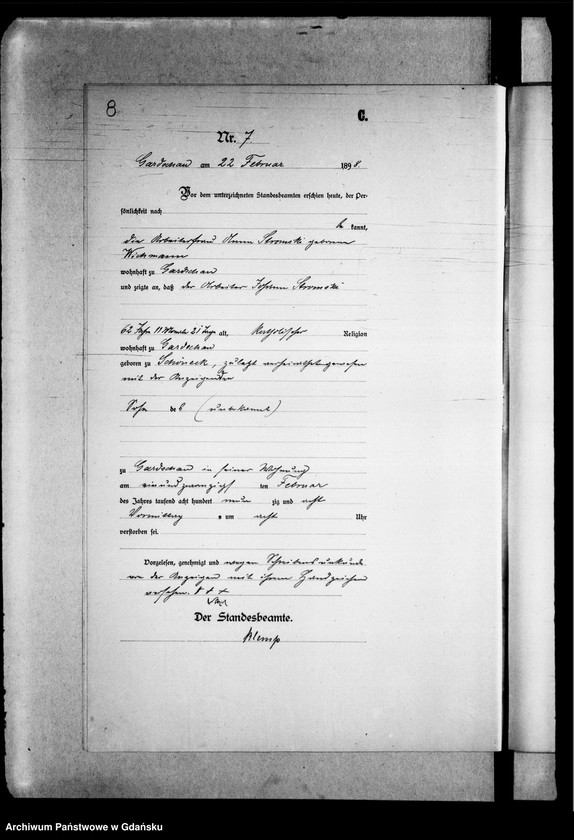 8
C.
Nr. 7
Gardschau am 22 Februar 1898.
Vor dem unterzeichneten Standesbeamten erschien heute, der Per-
sönlichkeit nach
be kannt,
die Arbeiterfrau Anna Stromski geborene
Wichmann
wohnhaft zu Gardschau
und zeigte an, daß der Arbeiter Johann Stromski
62 Jahre 11 Monate 21 Tage alt, Katholischer Religion
wohnhaft zu Gardschau
geboren zu Schöneck, zuletzt verheirathet gewesen
mit der Anzeigenden
Sohn des (unbekannt)
zu Gardschau in seiner Wohnung
am einundzwanzigsten Februar
des Jahres tausend acht hundert neun zig und acht
Vormittag s um acht Uhr
verstorben sei.
Vorgelesen, genehmigt und wegen Schreibensunkunde
von der Anzeigenden mit ihrem Handzeichen
versehen. + + +
Der Standesbeamte.
Klemp
Archiwum Państwowe w Gdańsku